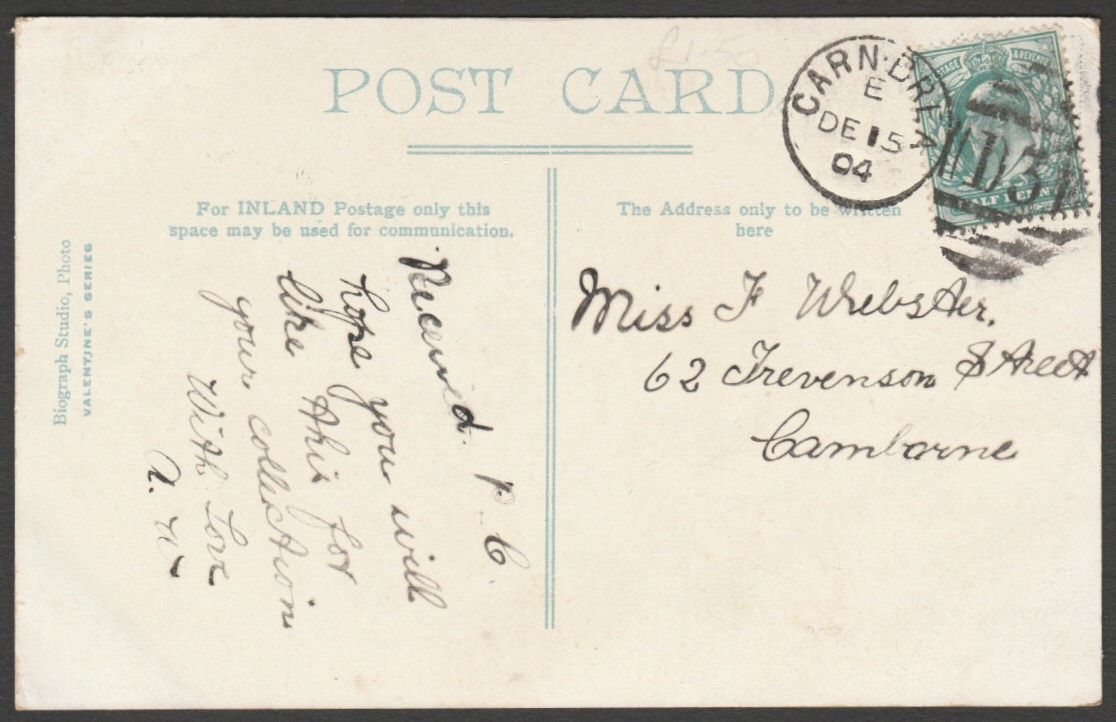 £1.50
POST CARD
CARN·BREA
E
DE 15
04
POSTAGE & REVENUE
D34
HALF
For INLAND Postage only this
space may be used for communication.
The Address only to be written
here
Biograph Studio, Photo
VALENTINE'S SERIES
Received P.C.
hope you will
like this for
your collection
With Love
A. W
Miss F Webster.
62 Trevenson Street
Camborne